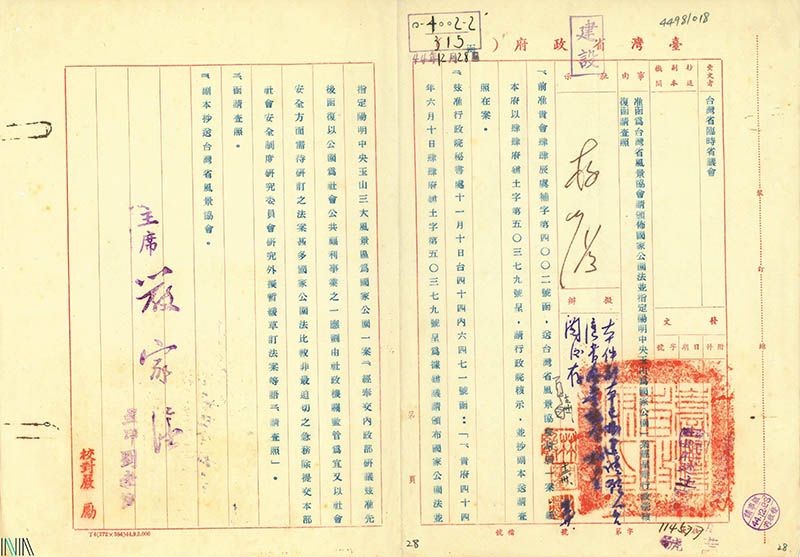 0-4002-2
315
44年12月28
建設
4498/018
臺灣省政府(
受文者
台灣省臨時省議會
抄送
副本
機關
事由
准函為台灣省風景協會請頒佈國家公園法並指定陽明中央玉山為國家公園一案
復函請查照
批示
擬辦
發文
附件
日期
字號
一、前准貴會肆肆辰虞補字第四〇〇二號函,送台灣省風景協會
本府以肆肆府建土字第五〇三七九號呈,請行政院核示,並抄副本送請查
照在案。
二、玆准行政院秘書處十一月十日台四十四內六四七一號函:「一、貴府四十四
年六月十日肆肆府建土字第五〇三七九號呈為據建議請頒布國家公園法並
指定陽明中央玉山三大風景區為國家公園一案。二經奉交內政部研議玆准先
後函復以公園為社會公共福利事業之一應屬由社政機關監管為宜又以社會
安全方面需待研訂之法案甚多國家公園法比較非最迫切之急務除提交本部
社會安全制度研究委員會研究外擬暫緩草訂法案等語三請查照」。
三、函請查照。
四、副本抄送台灣省風景協會。
主席 嚴家淦
校對嚴勵
第 頁
裝
訂
線
字第
檔號
28
28
T4(272×384)44.9.3,000